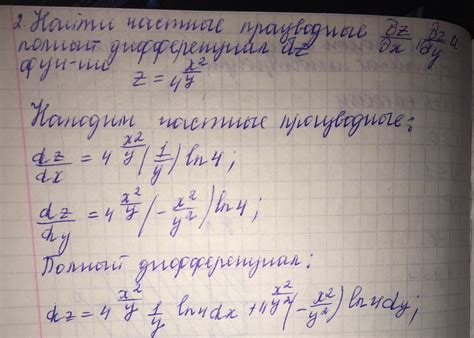 2. Найти частные працводные ∂z/∂x, ∂z/∂y и
полный дифференциал dz
фун-ии
z = 4^(x²/y);
Находим частные производные:
dz/dx = 4^(x²/y) (1/y) ln 4;
dz/dy = 4^(x²/y) (-x²/y²) ln 4;
Полный дифференциал:
dz = 4^(x²/y) 1/y ln 4 dx + 4^(x²/y²) (-x²/y²) ln 4 dy;